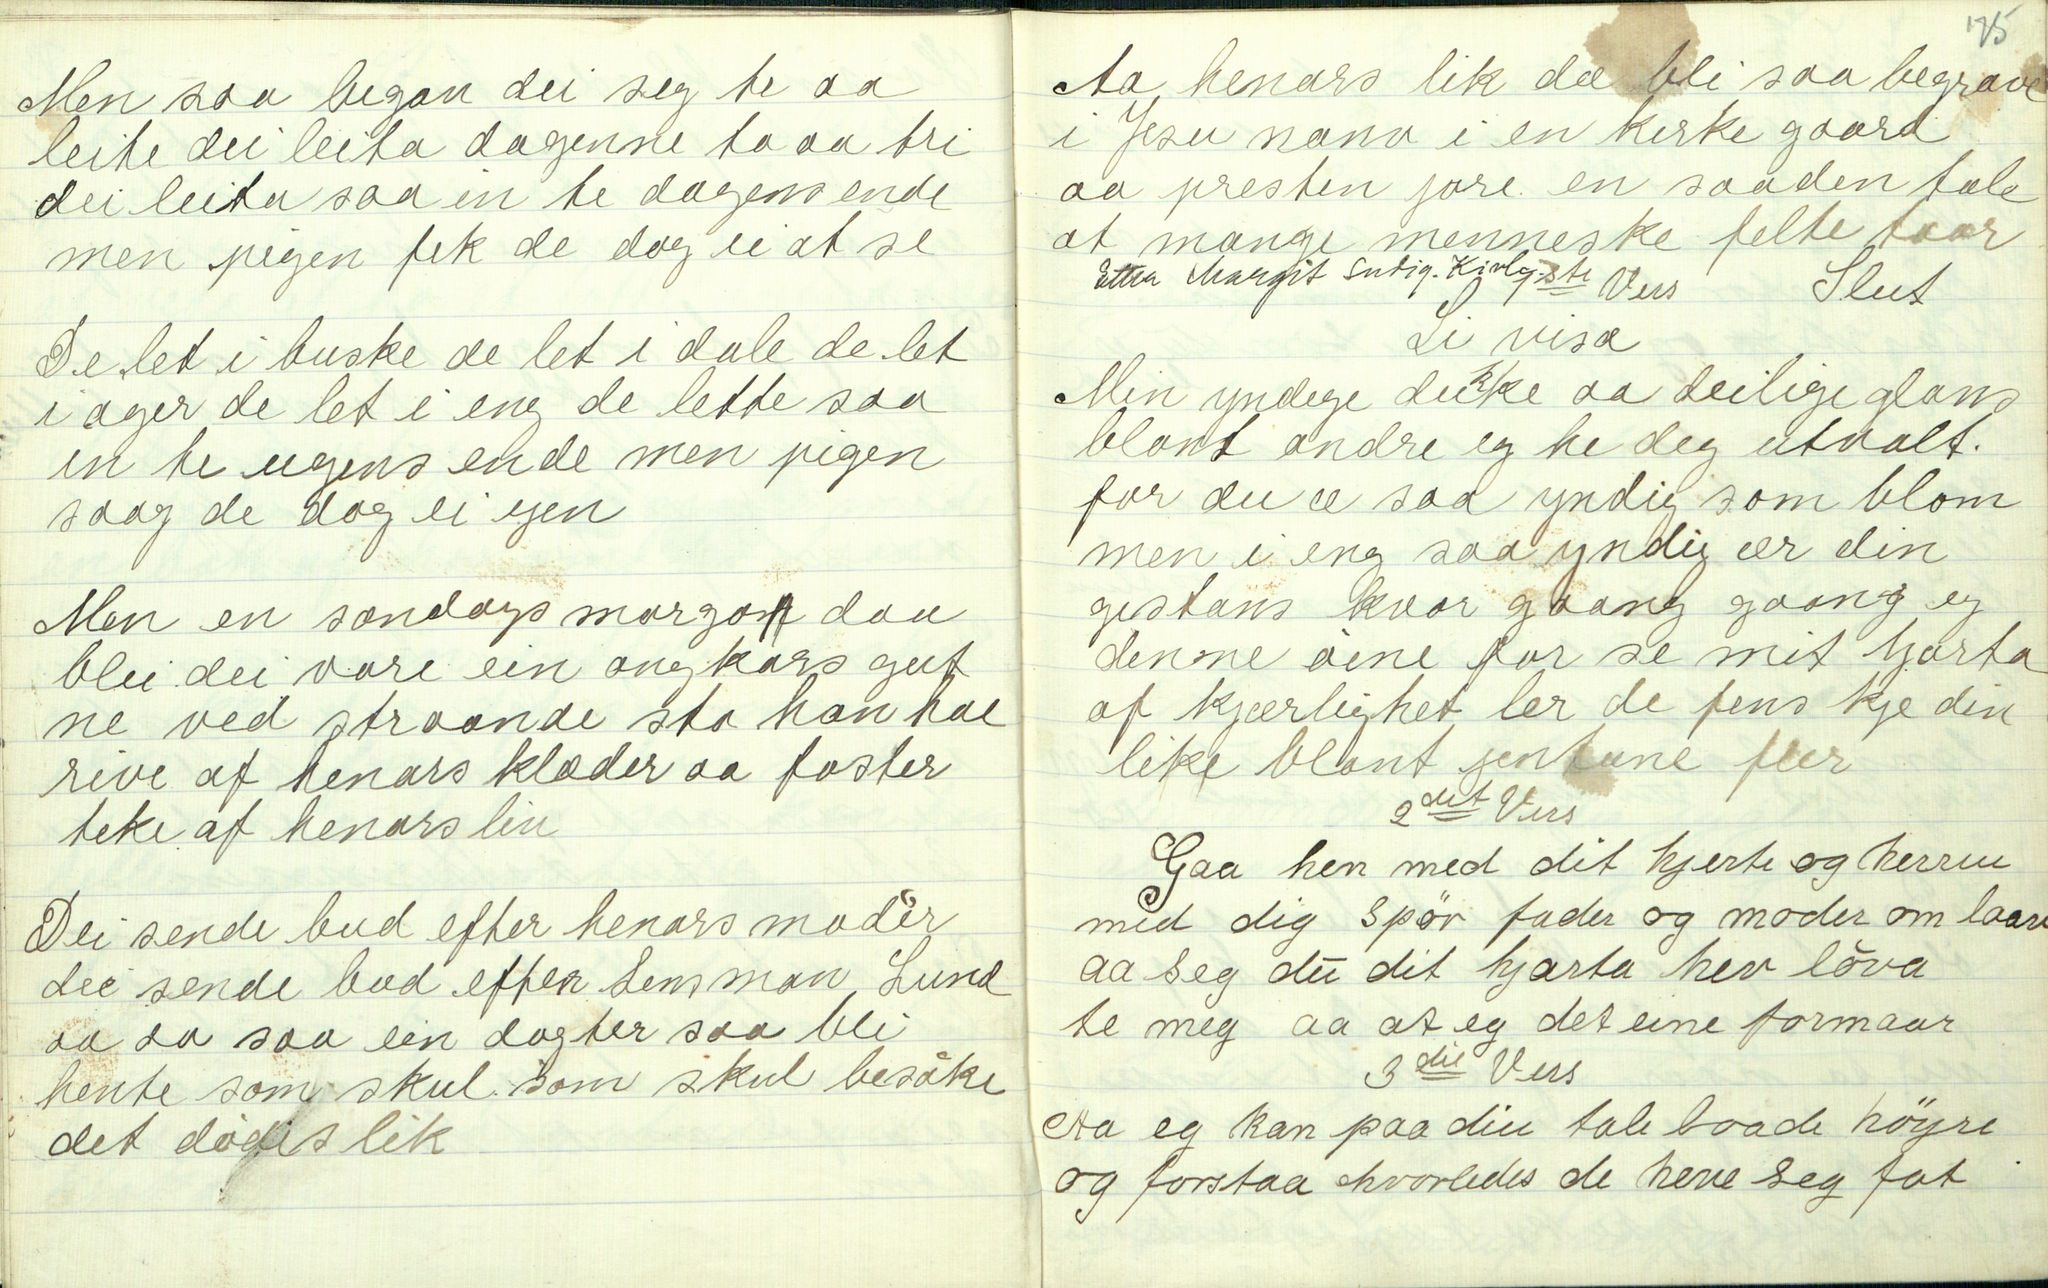 Men saa began dei seg te aa
leite dei leita dagenne to aa tri
dei leita saa in te dagens ende
men pigen fek de dog ei at se
De let i buske de let i dale de let
i ager de let i eng de lette saa
in te ugens ende men pigen
saag de dog ei igen
Men en sondags morgon daa
blei dei vare ein ongkars gut
ne ved straande sto han hae
rive af henars klæder aa foster
teke af henars liv
Dei sende bud efter henars moder
dei sende bud efter Lensman Lund
aa aa saa ein dagter saa bli
hente som skul som skul besöke
det dødes lik
175
Aa henars lik dæ bli saa begrave
i Jesu navn i en kerke gaard
aa presten jore en saaden tale
at mange menneske felte taar
Etter Margit Sudig.
1ste Vers Slut
Li visa
Min yndege dukke aa deilige glans
blant andre eg he deg utvalt.
for du æ saa yndig som blom
men i eng saa yndig ær din
gestans kvar gaang gaang eg
denne öine for se mit hjarta
af kjærlighet ler de fens kje din
like blant jentune fler
2det Vers
Gaa hen med dit hjerte og herru
med dig spör fader og moder om laav
aa seg du dit hjarta hev löva
te meg aa at eg det eine formaar
3die Vers
Aa eg kan paa din tale baade höyre
og forstaa hvorledes de heve seg fat